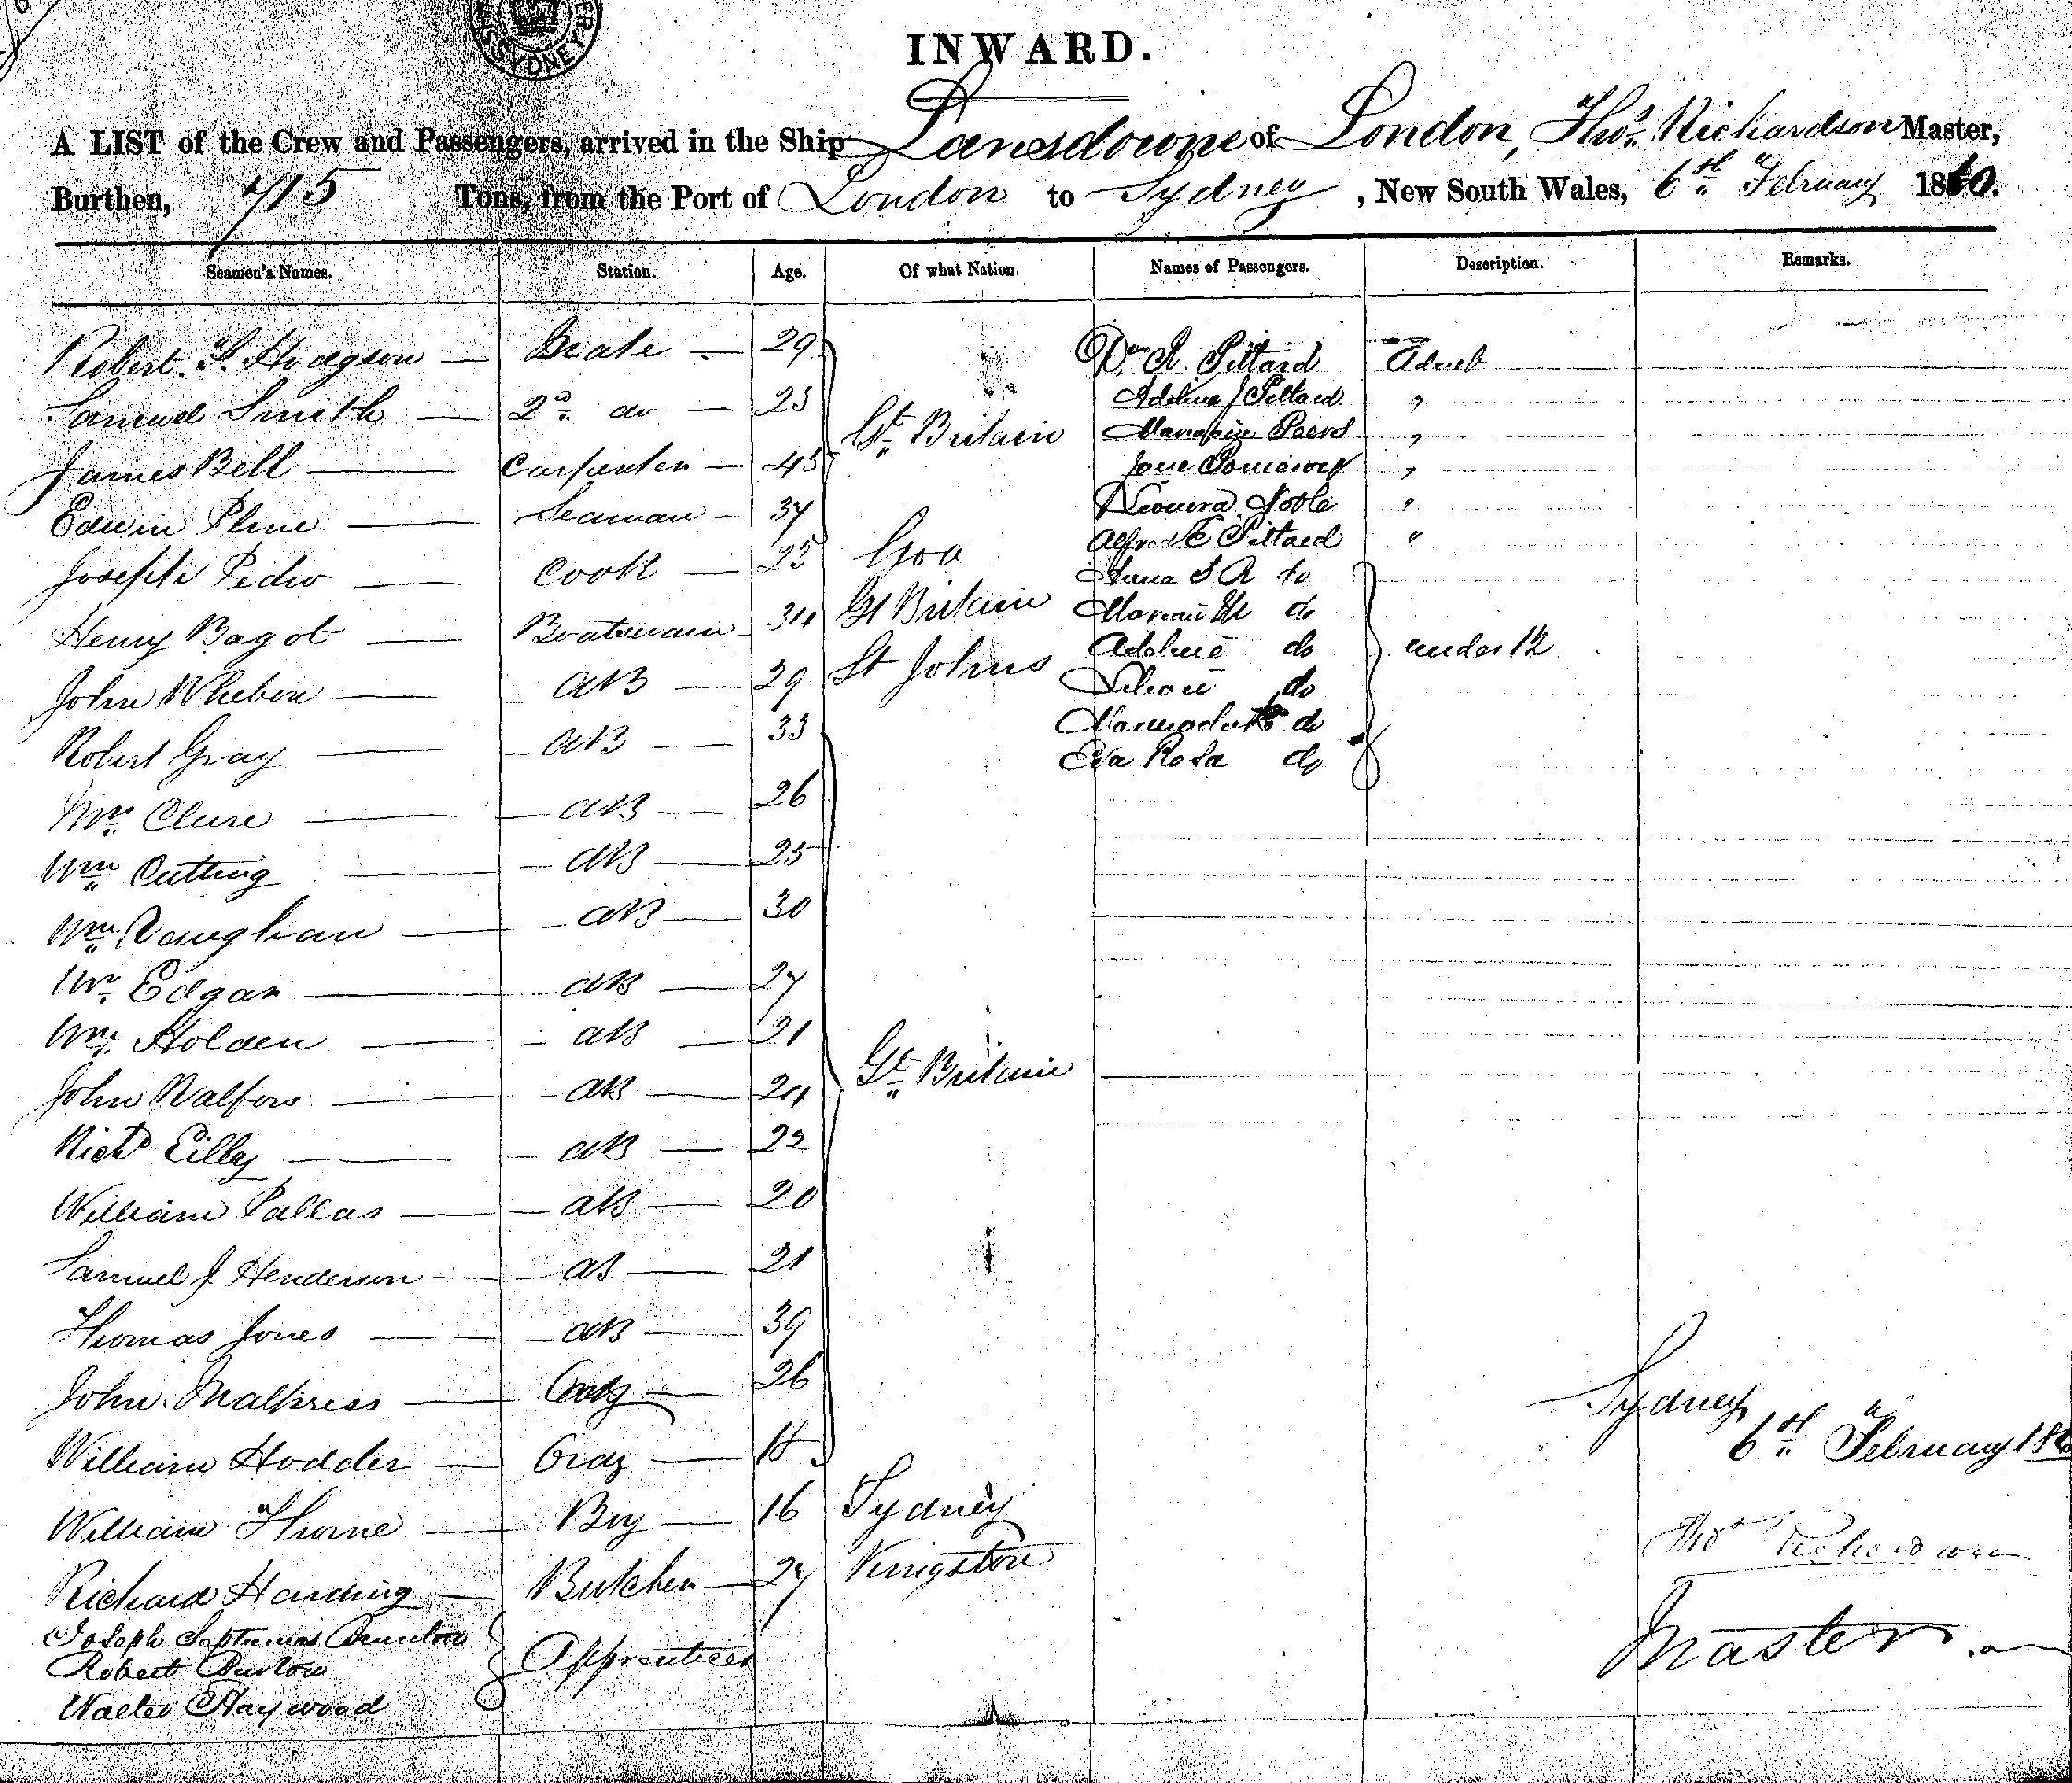 INWARD.
A LIST of the Crew and Passengers, arrived in the Ship Lansdowne of London, Thos. Richardson Master,
Burthen, 715 Tons, from the Port of London to Sydney, New South Wales, 6th February 1860.
Seamen's Names. Station. Age. Of what Nation. Names of Passengers. Description. Remarks.
Robert Hodgson Mate 29 R. Pittard
Samuel Smith 2d do 25 Adeline J Pittard "
James Bell Carpenter 45 Gt Britain "
Jane Pomeroy "
Edwin Seaman 37 "
Joseph Pedro Cook 25 Goa Alfred E Pittard "
Anna S R do
Henry Bagot Boatswain 34 Gt Britain do
Adeline do under 12
John AB 29 St Johns do
Robert Gray AB 33 do
Eva Rosa do
Wm Clure AB 26
Wm Cutting AB 25
Wm Vaughan AB 30
Wm Edgar AB 27
Wm Holden AB 21
John AB 24 Gt Britain
Richd AB 22
William Pallas AB 20
Samuel J Henderson AB 21
Thomas Jones AB 39
John 26 Sydney
William Hodder Ordy 18 6th February
William Thorne Boy 16 Sydney
Richard Harding Butcher 27 Kingston Thos Richardson
Joseph Septimus
Robert Apprentices Master
Walter Haywood